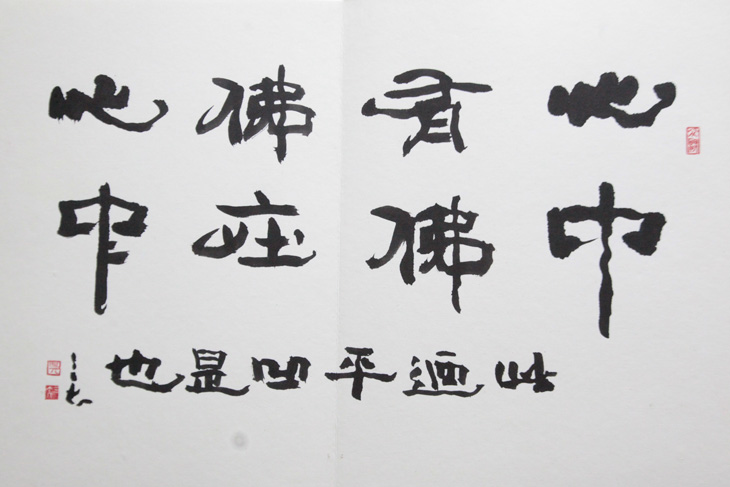 心中
有佛
佛在
心中
此迺平凹是也